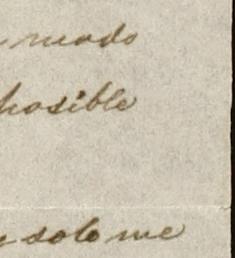 modo
posible
solo me